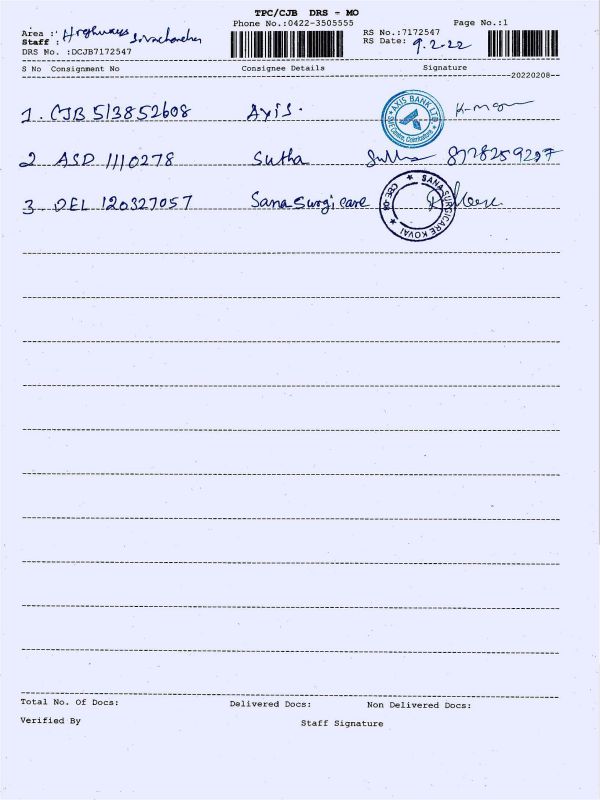 TPC/CJB DRS - MO
Phone No.:0422-3505555
Page No.:1
Area : Highways
Staff :
RS No.:7172547
RS Date: 9.2.22
DRS No. :DCJB7172547
S No Consignment No Consignee Details Signature
20220208
1. CJB 513852608 Axis. AXIS BANK LTD Coimbatore
2 ASD 1110278 Sutha
3 DEL 120327057 Sana Surgi care SANA SURGICARE KOVAI CBE-
Total No. Of Docs: Delivered Docs: Non Delivered Docs:
Verified By Staff Signature